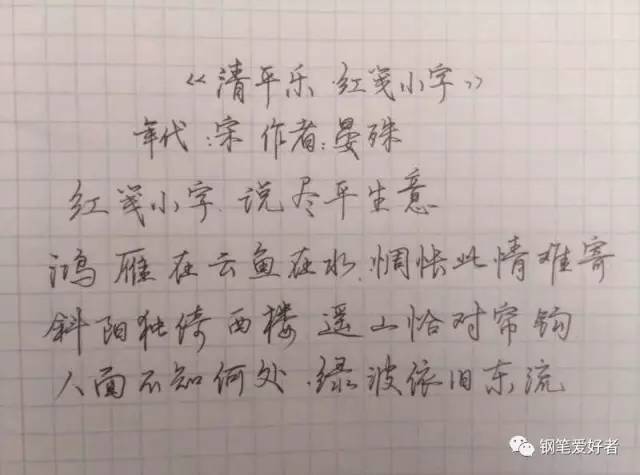 《清平乐·红笺小字》
年代:宋 作者:晏殊
红笺小字.说尽平生意.
鸿雁在云鱼在水.惆怅此情难寄
斜阳独倚西楼 遥山恰对帘钩
人面不知何处.绿波依旧东流
钢笔爱好者